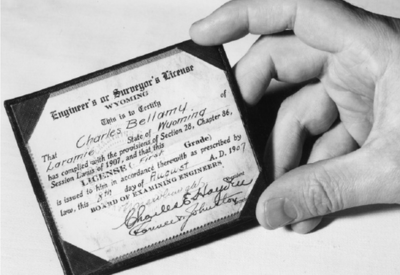 Engineer's or Surveyor's License
WYOMING
This is to Certify
That Charles Bellamy of
Laramie State of Wyoming
has complied with the provisions of Section 28, Chapter 86,
Session Laws of 1907, and that this
LICENSE ( First Grade)
is issued to him in accordance therewith as prescribed by
law, this 8th day of August A. D. 1907
BOARD OF EXAMINING ENGINEERS
Charles E. Hayden
Johnston